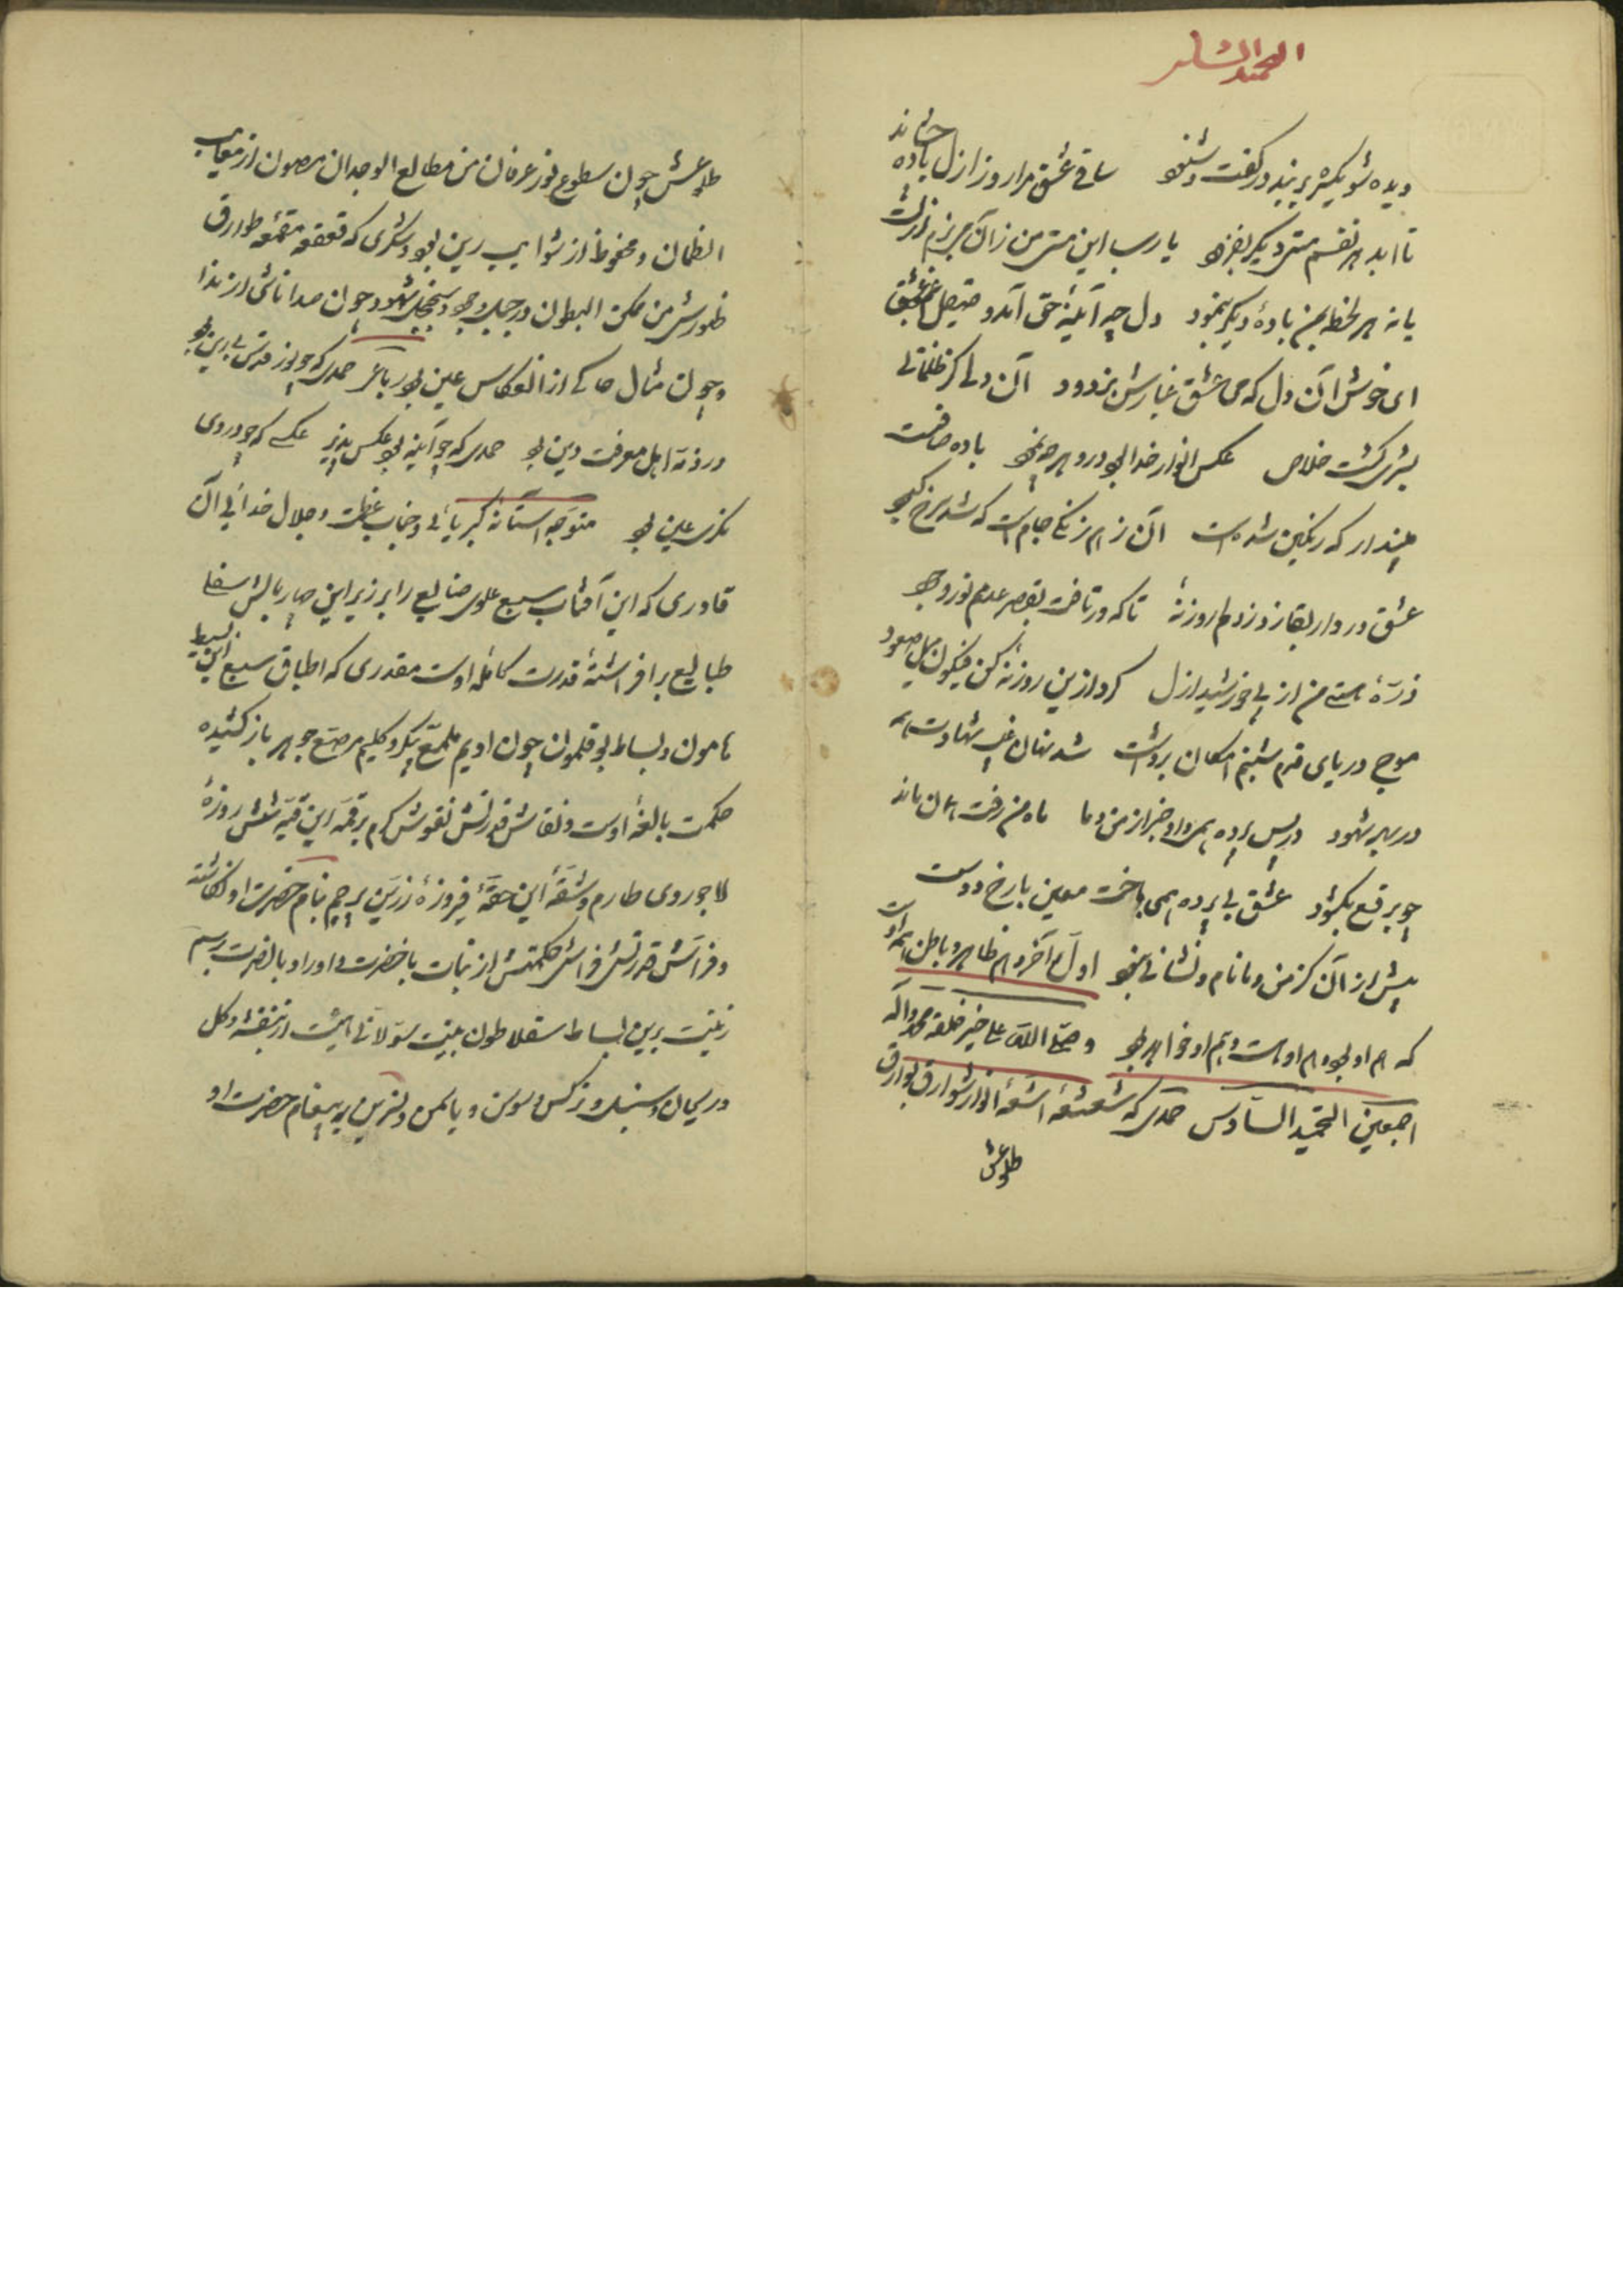 دیده شو یکسر بربند ز گفت و شنود ساقی عشق مرا روز ازل باده چشاند
تا ابد هر نفسم مستی دیگر بفزود یا رب این مستی من زان می بزم ازلست
یا نه هر لحظه بمن باده دیگر بنمود دل چو آئینه حق آمد و صیقل غم عشق
ای خوش آن دل که می عشق غبارش بزدود آن دلی کز ظلماتی
بشری گشت خلاص عکس انوار خدا بود درو هرچه نمود باده صافست
مپندار که رنگین شده است آن ز هم رنگی جامست که شد سرخ و کبود
عشق در دار بقا زد در روزنه تا که درتافت بقصر عدم نور وجود
ذرّهٔ هستی من از پی خورشید ازل کرد ازین روزنهٔ کن فیکون میل صعود
موج دریای قدم شبنم امکان برداشت شد نهان غیب شهادت همه
در بهر شهود در پس پرده همی داد خبر از من و ما ما و من رفت همان ماند
چو برقع بگشود عشق بی پرده همی باخت معین با رخ دوست
پیش از آن کز من و ما نام و نشانی نبود اول و آخر و هم ظاهر و باطن همه اوست
که هم او بود هم او هست و هم او خواهد بود و صلّی الله علی خیر خلقه محمد و آله
اجمعین التحمید السّادس حمدی که شعشعهٔ اشعّهٔ انوار شوارق بوارق
طلوعش
طلوعش چون سطوع نور عرفان من مطالع الوجدان مصون از معایب
الظمان و محفوظ از شوایب رین بود و شکری که قعقعه مقمعه طوارق
ظهورش من مکمن البطون در جبل وجود و سجنجل شهود چون صدا ناشی از ندا
و چون مثال حاکی از انعکاس عین بود رباعی حمدی که چو نور قدس بی رین بود
در ذمهٔ اهل معرفت دین بود حمدی که چو آئینه بود عکس پذیر عکسی که چو در وی
نگری عین بود متوجه آستانه کبریائی و جناب عظمت و جلال خدائی آن
قادری که این آفتاب سبع علوی صنایع را بر زبر این چار بالش سفلی
طبایع برافراشتهٔ قدرت کامله اوست مقدری که اطباق سبع این بسیط
هامون و بساط بوقلمون چون ادیم ملمع پیکر و گلیم مرصع جوهر باز کشیده
حکمت بالغهٔ اوست و نقاش قدرتش نقوش کرم بر قمهٔ این قبه شش روزهٔ
لاجوردی طارم و شقهٔ این حقهٔ فیروزهٔ زرین پرچم بنام حضرت او نگاشته
و فراش قدرتش فراش حکمتش از نبات با خضرت و اوراد با نضرت برسم
زینت برین بساط سقلاطون بنیت سوّلاتی هیئت از بنفشه و گل
و ریحان و سنبل و نرگس و سوسن و یاسمن و نسرین بر پیغام حضرت او